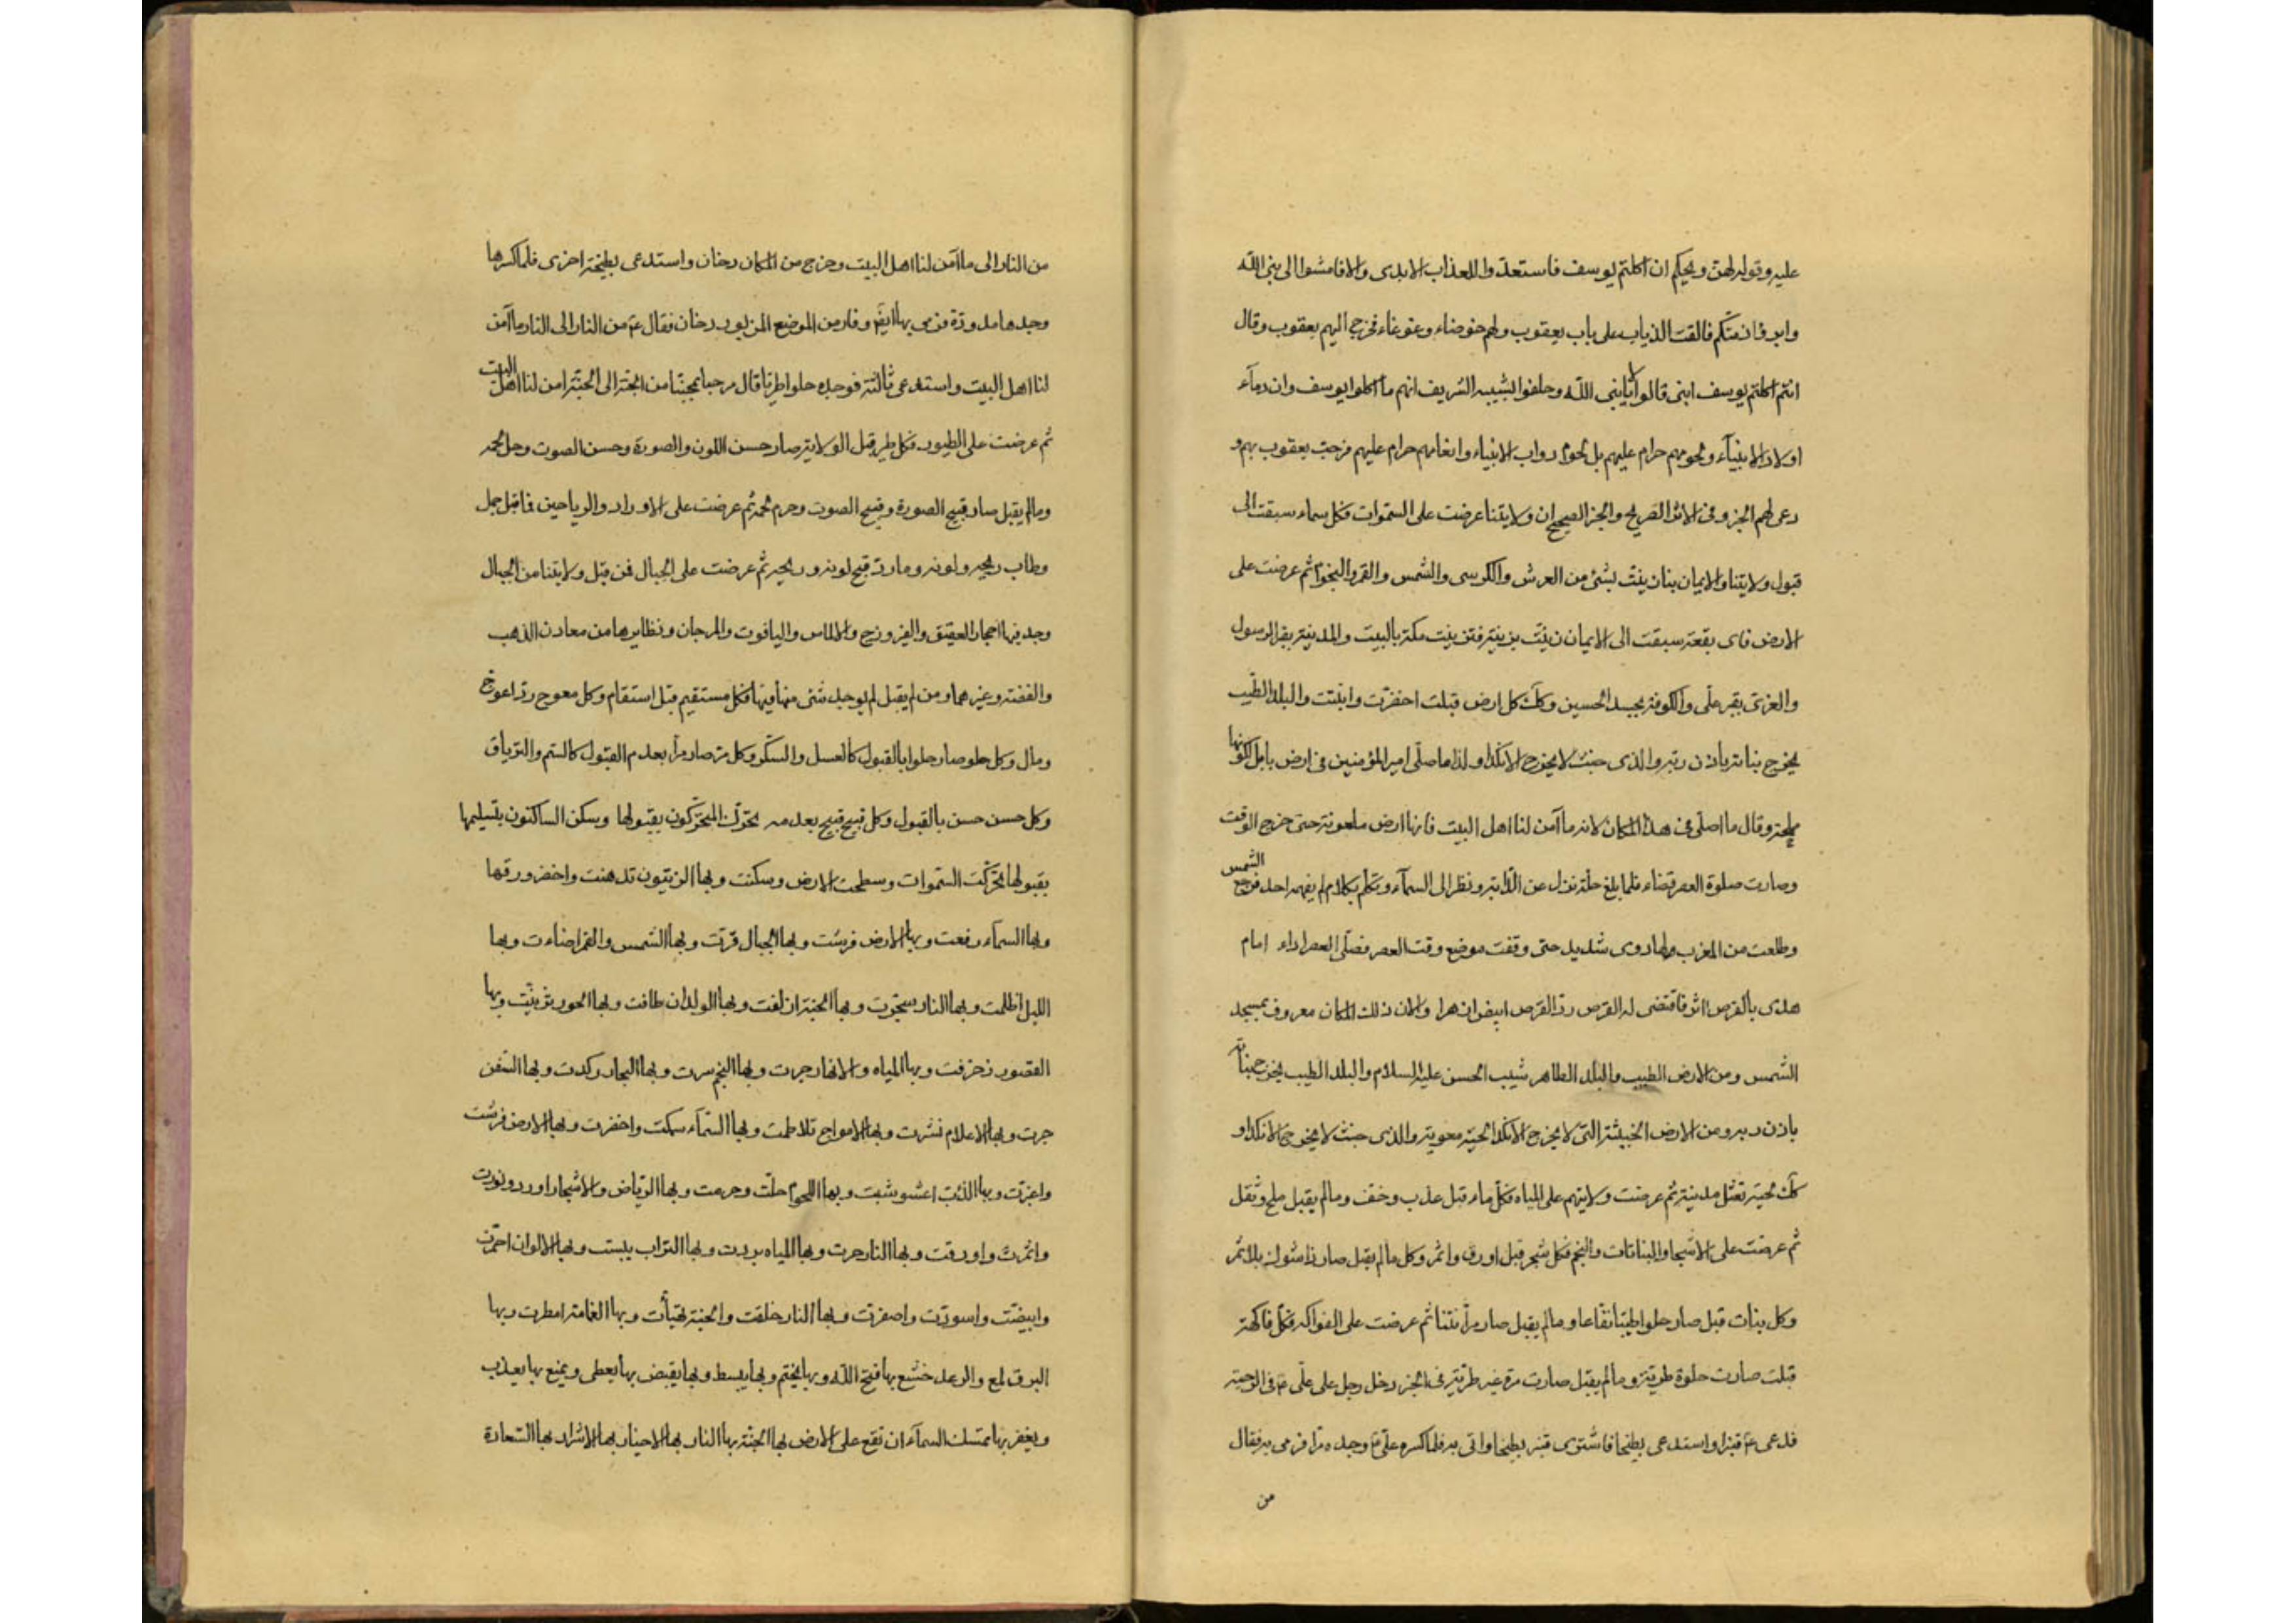 عليه وقوله لهن ويحكم ان اكلتم يوسف فاستعدّوا للعذاب الابدى والا فامشوا الى نبى الله
فالقت الذياب على باب يعقوب ولهم خوضاء وغوغاء فخرج اليهم يعقوب وقال
انتم اكلتم يوسف ابنى قالوا لا يا نبى الله وحلفوا بشيبه الشريف انهم ما اكلوا يوسف وان دماء
اولاد الانبيآء ولحومهم حرام عليهم بل لحوم دواب الانبياء وانعامهم حرام عليهم فرحب يعقوب بهم و
دعى لهم الخبر وفى الاثر الصريح والخبر الصحيح ان ولايتنا عرضت على السموات فكل سماء سبقت الى
قبول ولايتنا والايمان بنا زينت بشئ من العرش والكرسى والشمس والقمر والنجوم ثم عرضت على
الارض فاى بقعة سبقت الى الايمان زيّنت بزينة فتزينت مكة بالبيت والمدينة بقبر الرسول
والغرى بقبر على والكوفة بجسد الحسين وكذلك كل ارض قبلت اخضرّت وانبتت والبلد الطيب
يخرج نباته باذن ربه والذى خبث لا يخرج الا نكدا ولذا ما صلّى امير المؤمنين فى ارض بابل لكونها
ملحة وقال ما اصلّى فى هذا المكان لانه ما آمن لنا اهل البيت فانها ارض ملعونة حتى خرج الوقت
وصارت صلوة العصر قضاء فلما بلغ حلة نزل عن الدّابة ونظر الى السمآء وتكلم بكلام لم يفهمه احد فرجع الشمس
وطلعت من المغرب ولها دوى شديد حتى وقفت موضع وقت العصر فصلّى العصر اداء امام
هدى بالقرص اثر فاقتضى له القرص ردّ القرص ابيض ازهرا والان ذلك المكان معروف بمسجد
الشمس ومن الارض الطيب والبلد الطاهر شيب الحسن عليه السلام والبلد الطيب يخرج نباته
باذن ربه ومن الارض الخبيثة التى لا يخرج الا نكدا لحية معوية والذى خبث لا يخرج الا نكدا و
لحية نعثل مدينة ثم عرضت ولايتهم على المياه فكل ماء قبل عذب وخفف وما لم يقبل ملح وثقل
ثم عرضت على الاشجار والنباتات والنجم فكل شجر قبل اورق واثمر وكل ما لم يقبل صار ذا شوك بلا ثمر
وكل نبات قبل صار حلوا طيبا نفاعا وما لم يقبل صار مرّا نتنا ثم عرضت على الفواكه فكل فاكهة
قبلت صارت حلوة طرية وما لم يقبل صارت مرة غير طرية فى الخبر دخل رجل على علىّ ع فى الرحبة
فدعى ع قنبرا واستدعى بطيخا فاشترى قنبر بطيخا واتى به فلما كسره علىّ ع وجده مرّا فرمى به فقال
من
من النار الى ما آمن لنا اهل البيت وخرج من المكان دخان واستدعى بطيخة اخرى فلما كسرها
وجدها مدودة فرمى بها ايضا وفار من الموضع المزبور دخان فقال ع من النار الى النار ما آمن
لنا اهل البيت واستدعى ثالثة فوجده حلوا طريا قال مرحبا بمحبنا من الجنة الى الجنة امن لنا اهل البيت
ثم عرضت على الطيور فكل طير قبل الولاية صار حسن اللون والصورة وحسن الصوت وحل لحمه
وما لم يقبل صار قبيح الصورة وقبيح الصوت وحرم لحمه ثم عرضت على الاوراد والرياحين فما قبل جمل
وطاب ريحه ولونه وما ردّ قبح لونه وريحه ثم عرضت على الجبال فمن قبل ولايتنا من الجبال
وجد فيها احجار العقيق والفيروزج والالماس والياقوت والمرجان ونظايرها من معادن الذهب
والفضة وغيرهما ومن لم يقبل لم يوجد شئ منها فيها فكل مستقيم قبل استقام وكل معوج ردّ اعوج
ومال وكل حلو صار حلوا بالقبول كالعسل والسكر وكل مرّ صار مرّا بعدم القبول كالسم والترياق
وكل حسن حسن بالقبول وكل قبيح قبيح بعدمه تحرّك المتحركون بقبولها وسكن الساكنون بتسليمها
بقبولها تحركت السموات وسطحت الارض وسكنت وبها الزيتون تدهنت واخضر ورقها
وبها السمآء رفعت وبها الارض فرشت وبها الجبال قرّت وبها الشمس والقمر اضاءت وبها
الليل اظلمت وبها النار سجرت وبها الجنة ازلفت وبها الولدان طافت وبها الحور تزينت وبها
القصور زخرفت وبها المياه والانهار جرت وبها النجم سرت وبها البحار ركدت وبها السفن
جرت وبها الاعلام نشرت وبها الامواج تلاطمت وبها السمآء سمكت واخضرت وبها الارض فرشت
واغبرّت وبها اللحوم حلّت وحرمت وبها الرياض والاشجار اوردو نورت
واثمرت واورقت وبها النار حرت وبها المياه بردت وبها التراب يبست وبها الالوان احمرّت
وابيضّت واسودّت واصفرّت وبها النار خلقت والجنة تهيأت وبها الغامة امطرت وبها
البرق لمع والرعد خشع بها فتح الله وبها يختم وبها يبسط وبها يقبض بها يعطى ويمنع بها يعذب
ويغفر بها تمسك السمآء ان تقع على الارض بها الجنة بها النار بها الاخيار بها الاشرار بها السّعادة